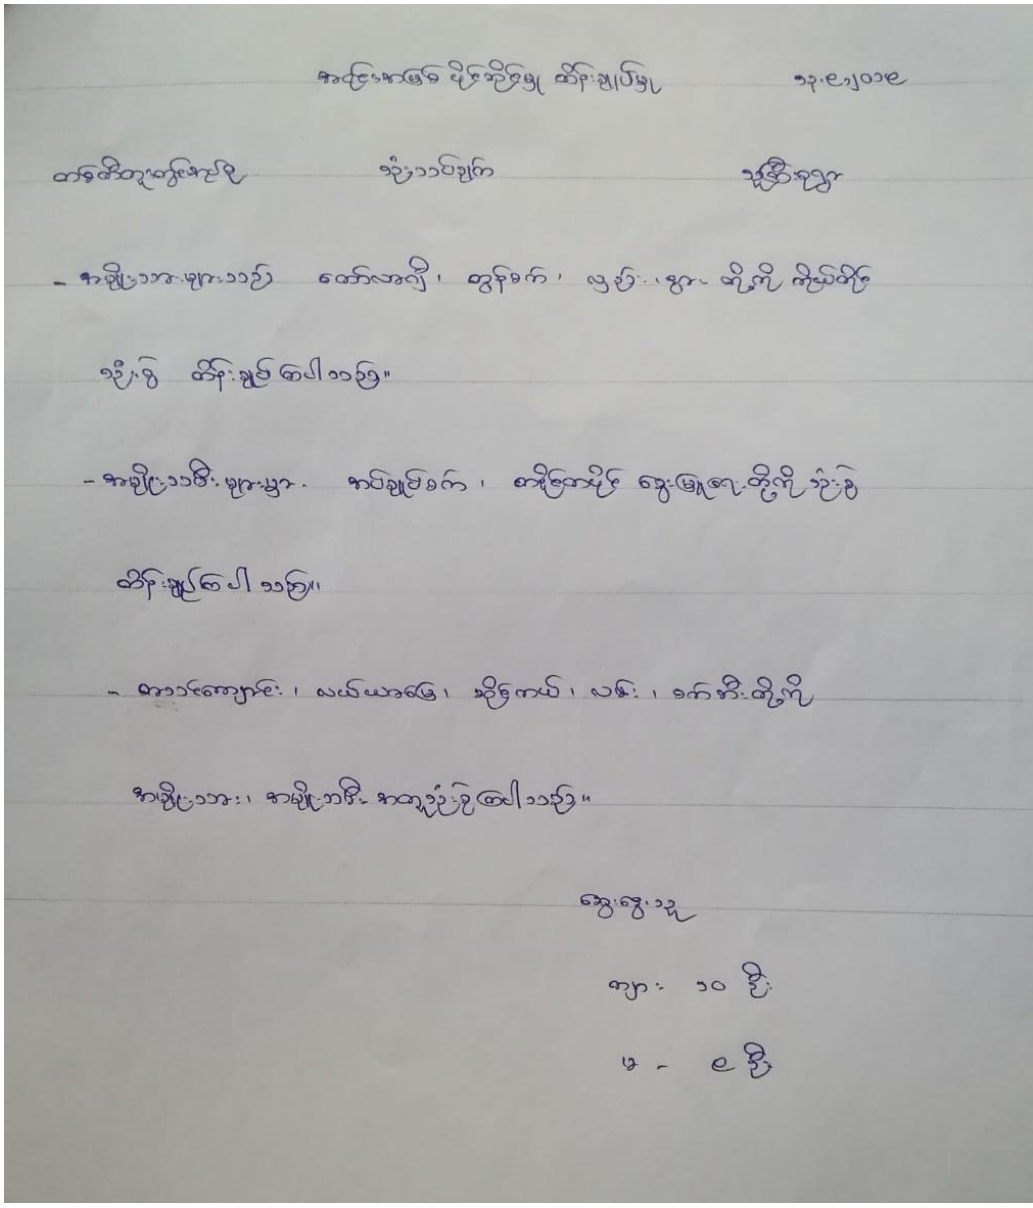 အရင်းအမြစ် ပိုင်ဆိုင်မှု ထိန်းချုပ်မှု ၁၃.၉.၂၀၁၉
သုံးသပ်ချက် သူကြီးရွာ
- အမျိုးသားများသည် ထော်လာဂျီ၊ ထွန်စက်၊ လှည်း၊ နွား တို့ကို ကိုယ်တိုင်
သုံးစွဲ ထိန်းချုပ်ကြပါသည်။
- အမျိုးသမီးများမှာ အပ်ချုပ်စက်၊ တပိုင်တပိုင် မွေးမြူရေးတို့ကို သုံးစွဲ
ထိန်းချုပ်ကြပါသည်။
- စာသင်ကျောင်း၊ လယ်ယာမြေ၊ ဆိုင်ကယ်၊ လမ်း၊ စက်ဘီးတို့ကို
အမျိုးသား၊ အမျိုးသမီး အတူသုံးစွဲကြပါသည်။
ဆွေးနွေးသူ
ကျား ၁၀ ဦး
မ - ၉ ဦး